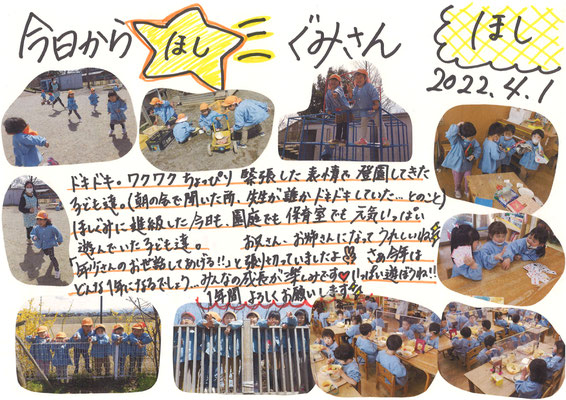 今日から ほし ぐみさん
ほし
2022.4.1
ドキドキ。ワクワク ちょっぴり 緊張した 表情で 登園してきた
子ども達。(朝の会で聞いた所、先生が誰か ドキドキしていた…とのこと)
ほしぐみに進級した今日も、園庭でも 保育室でも 元気いっぱい
遊んでいた子ども達。 お兄さん、お姉さんになって うれしいね
「年少さんのお世話してあげる!!」と張り切っていましたよ!! さぁ今年は
どんな1年になるでしょう…みんなの成長が楽しみです♥ いっぱい遊ぼうね!!
1年間、よろしくお願いします